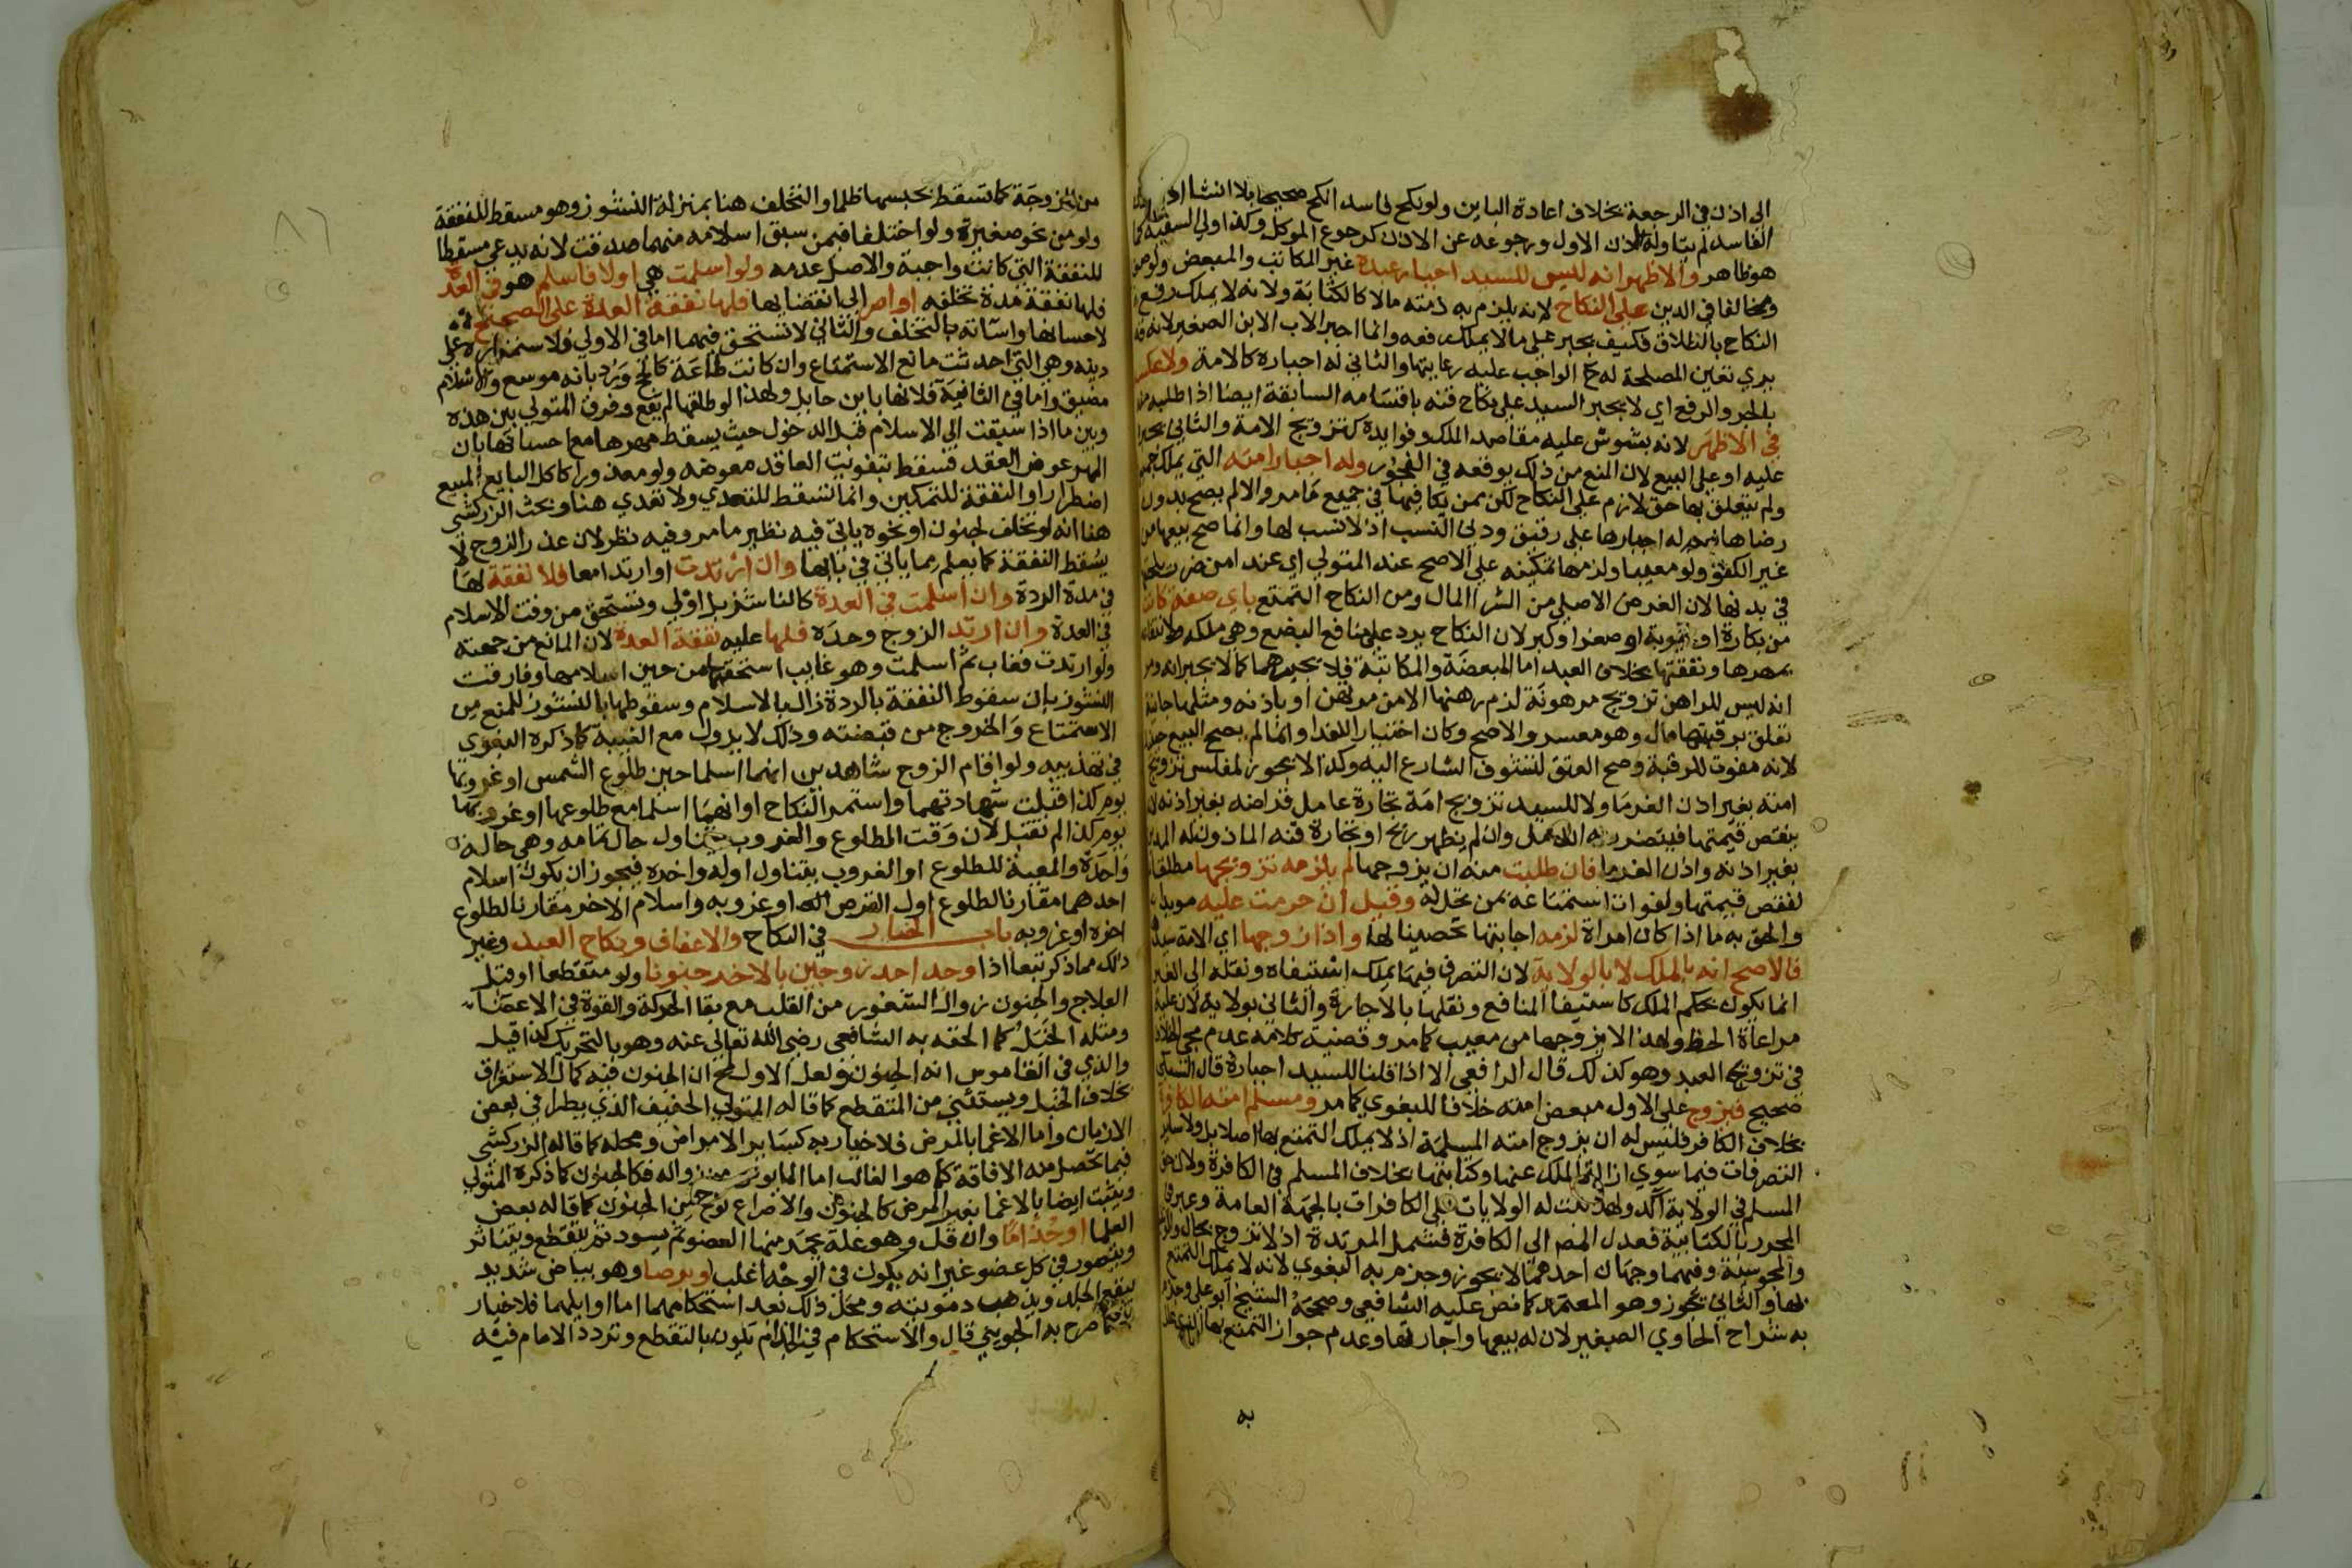 الى اذن في الرجعة بخلاف اعادة الباين ولو نكح فاسدا نكح صحيحا بلا انشا اذن
الفاسد لم يتناوله الاذن الاول ورجوعه عن الاذن كرجوع الموكل وكذا ولي السفيه كما
هو ظاهر والاظهر انه ليس للسيد اجبار عبده غير المكاتب والمبعض ولو صغيرا
ومخالفا في الدين على النكاح لانه يلزم به ذمته مالا كالكتابة ولانه لا يملك رفع
النكاح بالطلاق فكيف يجبر على ما لا يملك رفعه وانما اجبر الاب الابن الصغير لانه قد
يري تعين المصلحة له ح الواجب عليه رعايتها والثاني له اجباره كالامة ولا عكس
بالجر والرفع اي لا يجبر السيد على نكاح قنه باقسامه السابقة ايضا اذا طلبه منه
في الاظهر لانه يشوش عليه مقاصد الملك وفوايده كتزويج الامة والثاني يجبر
عليه او على البيع لان المنع من ذلك يوقعه في الفجور وله اجبار امته التي يملك جميعها
ولم يتعلق بها حق لازم على النكاح لكن بمن يكافيها في جميع ما مر والا لم يصح بدون
رضاها نعم له اجبارها على رقيق ودني النسب اذ لا نسب لها وانما صح بيعها من
غير الكفو ولو معيبا ولزمها تمكينه على الاصح عند المتولي اي عند امن ضرر يلحقها
في بدنها لان الغرض الاصلي من الشرا المال ومن النكاح التمتع باي صفة كانت
من بكارة او ثيوبة او صغر او كبر لان النكاح يرد على منافع البضع وهي ملكه ولانتفاعه
بمهرها ونفقتها بخلاف العبد اما المبعضة والمكاتبة فلا يجبرهما كما لا يجبرانه ومر
انه ليس للراهن تزويج مرهونة لزم رهنها الا من مرتهن او باذنه ومثلها جانية
تعلق برقبتها مال وهو معسر والاصح وكان اختيار اللفدا وانما لم يصح البيع حذرا
لانه مفوت للرقبة وصح العتق لتشوف الشارع اليه وكذا لا يجوز لمفلس تزويج
امته بغير اذن الغرما ولا للسيد تزويج امة تجارة عامل قراضه بغير اذنه لان
ينقص قيمتها فيتضرر به العامل وان لم يظهر ربح او تجارة قنه الماذون له المدين
بغير اذنه واذن الغرما فان طلبت منه ان يزوجها لم يلزمه تزويجها مطلقا
لنقص قيمتها ولفوات استمتاعه بمن تحل له وقيل ان حرمت عليه موبدا
والحق به ما اذا كان امراة لزمه اجابتها تحصينا لها واذا زوجها اي الامة سيدها
فالاصح انه بالملك لا بالولاية لان التصرف فيما يملك استيفاه ونقله الى الغير
انما يكون بحكم الملك كاستيفا المنافع ونقلها بالاجارة والثاني بولاية لان عليه
مراعاة الحظ ولهذا لا يزوجها من معيب كما مر وقضية كلامه عدم مجي الخلاف
في تزويج العبد وهو كذلك قال الرافعي الا اذا قلنا للسيد اجباره قال السبكي
صحيح فيزوج على الاول مبعض امته خلافا للبغوي كما مر ومسلم امته الكافرة
بخلاف الكافر فليس له ان يزوج امته المسلمة اذ لا يملك التمتع بها اصلا بل ولا ساير
التصرفات فيما سوي ازالة الملك عنها وكتابتها بخلاف المسلم في الكافرة ولان حق
المسلم في الولاية آكد ولهذا تثبت له الولايات على الكافرات بالجهة العامة وعبر في
المحرر بالكتابية فعدل المص الى الكافرة فتشمل المرتدة اذ لا تزوج بحال والوثنية
والمجوسية وفيهما وجهان احدهما لا يجوز وجزم به البغوي لانه لا يملك التمتع
بها والثاني تجوز وهو المعتمد كما نص عليه الشافعي وصححه الشيخ ابو علي وجزم
به شراح الحاوي الصغير لان له بيعها واجارتها وعدم جواز التمتع بها
به
من المزوجة كما تسقط بحبسها ظلما والتخلف هنا بمنزلة النشوز وهو مسقط للنفقة
ولو من نحو صغيرة ولو اختلفا فيمن سبق اسلامه منهما صدقت لانه يدعي مسقطا
للنفقة التي كانت واجبة والاصل عدمه ولو اسلمت هي اولا فاسلم هو في العدة
فلها نفقة مدة تخلفه او اصر الى انقضايها فلها نفقة العدة على الصحيح
لاحسانها واساته بالتخلف والثاني لا تستحق فيهما اما في الاولي فلاستمراره على
دينه وهي التي احدثت مانع الاستمتاع وان كانت طاعة كالحج ورد بانه موسع والاسلام
مضيق واما في الثانية فلانها باين حايل ولهذا لو طلقها لم يقع وفرق المتولي بين هذه
وبين ما اذا سبقت الى الاسلام قبل الدخول حيث يسقط مهرها مع احسانها بان
المهر عوض العقد فسقط بتفويت العاقد معوضه ولو معذورا كاكل البايع المبيع
اضطرارا والنفقة للتمكين وانما تسقط للتعدي ولا تعدي هنا وبحث الزركشي
هنا انه لو تخلف لجنون او نحوه ياتي فيه نظير ما مر وفيه نظر لان عذر الزوج لا
يسقط النفقة كما يعلم مما ياتي في بابها وان ارتدت او ارتدا معا فلا نفقة لها
في مدة الردة وان اسلمت في العدة كالناشز بل اولي وتستحق من وقت الاسلام
في العدة وان ارتد الزوج وحده فلها عليه نفقة العدة لان المانع من جهته
ولو ارتدت فغاب ثم اسلمت وهو غايب استحقتها من حين اسلامها وفارقت
النشوز بان سقوط النفقة بالردة زال بالاسلام وسقوطها بالنشوز للمنع من
الاستمتاع والخروج من قبضته وذلك لا يزول مع الغيبة كما ذكره البغوي
في تهذيبه ولو اقام الزوج شاهدين انهما اسلما حين طلوع الشمس او غروبها
يوم كذا قبلت شهادتهما واستمر النكاح او انهما اسلما مع طلوعها او غروبها
يوم كذا لم تقبل لان وقت الطلوع والغروب يتناول حال تمامه وهي حالة
واحدة والمعية للطلوع او الغروب يتناول اوله واخره فيجوز ان يكون اسلام
احدهما مقارنا لطلوع اول القرص او غروبه واسلام الاخر مقارنا لطلوع
اخره او غروبه باب الخيار في النكاح والاعفاف ونكاح العبد وغير
ذلك مما ذكر تبعا اذا وجد احد زوجين بالاخر جنونا ولو متقطعا او قبل
العلاج والجنون زوال الشعور من القلب مع بقا الحركة والقوة في الاعضا
ومثله الخبل كما الحقه به الشافعي رضي الله تعالى عنه وهو بالتحريك كذا قيل
والذي في القاموس انه الجنون ولعل الاول لمح ان الجنون فيه كمال الاستغراق
بخلاف الخبل ويستثني من المتقطع كما قاله المتولي الخفيف الذي يطرا في بعض
الازمان واما الاغما بالمرض فلا خيار به كساير الامراض ومحله كما قاله الزركشي
فيما تحصل منه الافاقة كما هو الغالب اما المايوس من زواله فكالجنون كما ذكره المتولي
ويثبت ايضا بالاغما بغير المرض كالجنون والاصراع نوع من الجنون كما قاله بعض
العلما او جذاما وان قل وهو علة يحمر منها العضو ثم يسود ثم يتقطع ويتناثر
ويتصور في كل عضو غير انه يكون في الوجه اغلب او برصا وهو بياض شديد
يبقع الجلد ويذهب دمويته ومحل ذلك بعد استحكامهما اما اوايلهما فلا خيار
كما صرح به الجويني قال والاستحكام في الجذام يكون بالتقطع وتردد الامام فيه